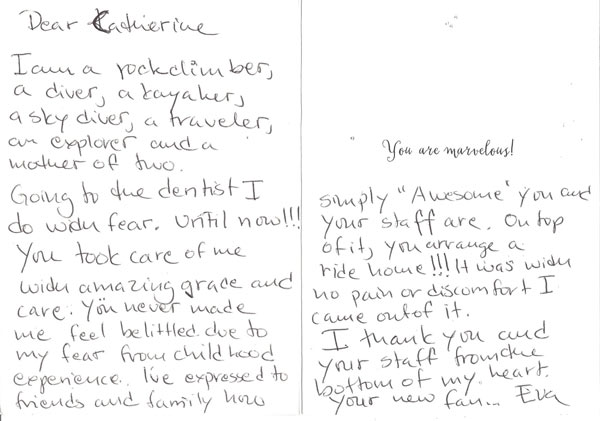 Dear Catherine
I am a rockclimber,
a diver, a kayaker,
a sky diver, a traveler,
an explorer and a
mother of two.
Going to the dentist I
do with fear. Until now!!!
You took care of me
with amazing grace and
care. You never made
me feel belittled due to
my fear from childhood
experience. I've expressed to
friends and family how
You are marvelous!
simply "Awesome" you and
your staff are. On top
of it, you arrange a
ride home!!! It was with
no pain or discomfort I
came out of it.
I thank you and
your staff from the
bottom of my heart.
Your new fan... Eva